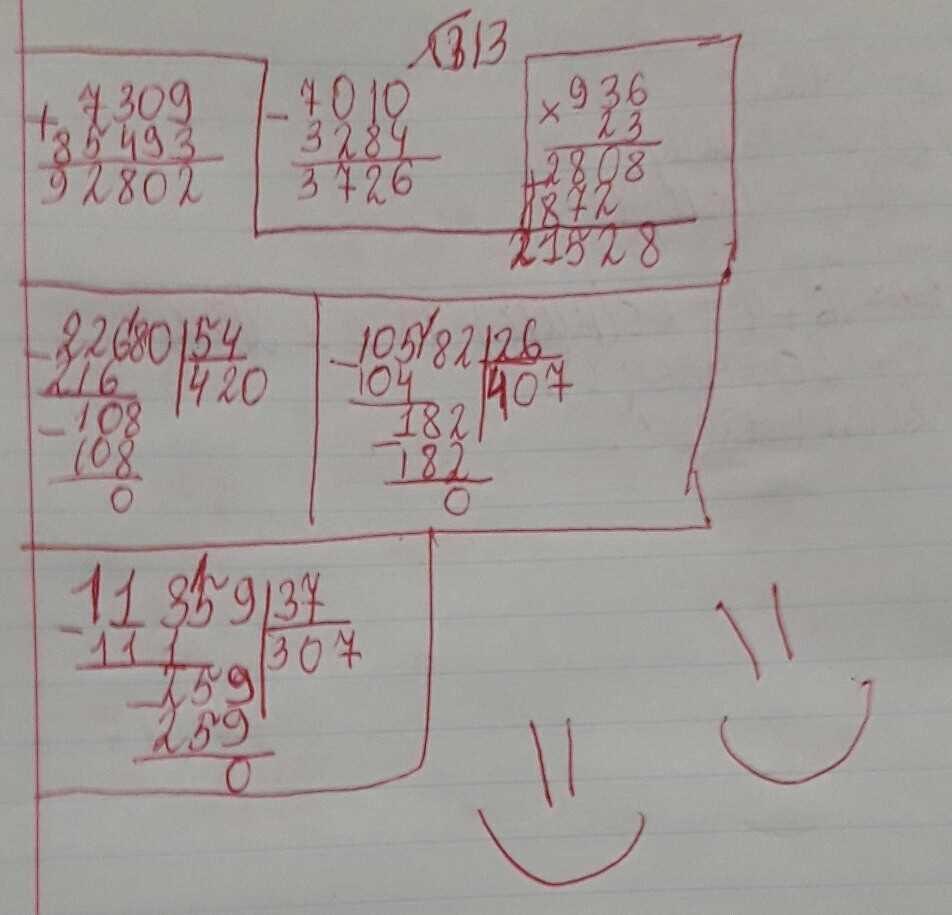 313
+ 7309
85493
92802
- 7010
3284
3726
× 936
23
+2808
1872
21528
- 22680 | 54
216 | 420
- 108
108
0
- 10582 | 26
104 | 407
182
- 182
0
- 11359 | 37
111 | 307
- 259
259
0